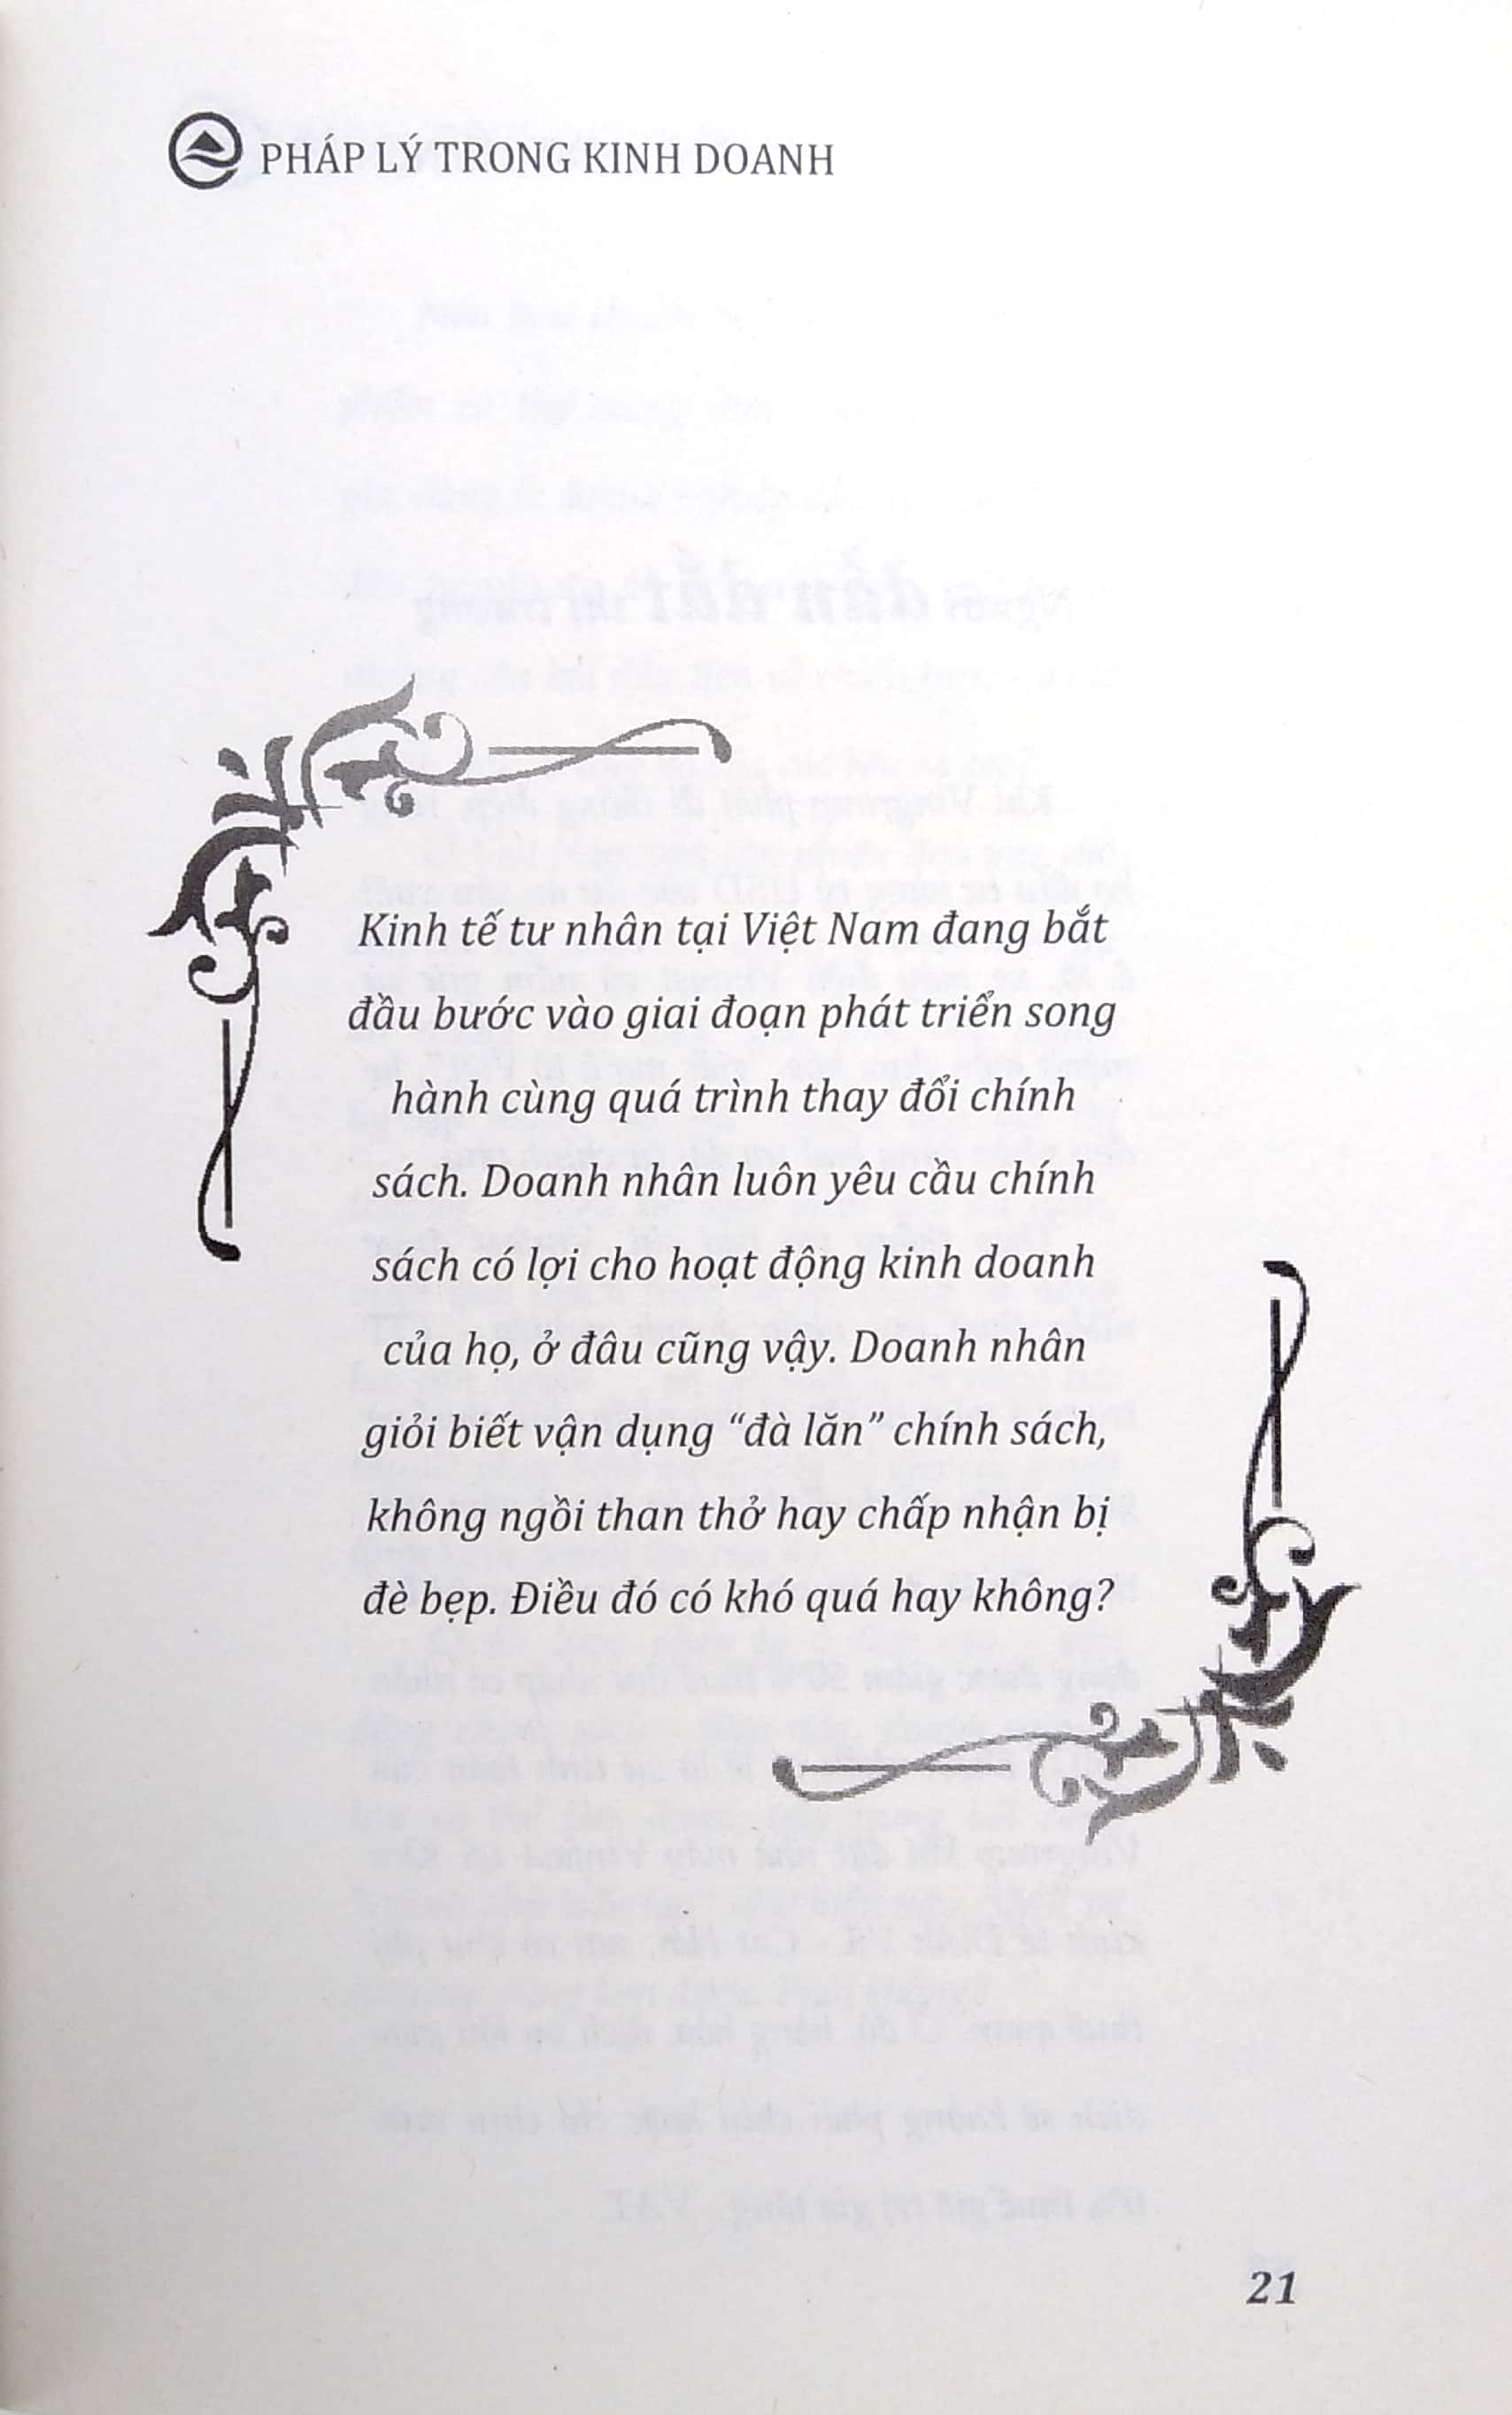 PHÁP LÝ TRONG KINH DOANH
Kinh tế tư nhân tại Việt Nam đang bắt
đầu bước vào giai đoạn phát triển song
hành cùng quá trình thay đổi chính
sách. Doanh nhân luôn yêu cầu chính
sách có lợi cho hoạt động kinh doanh
của họ, ở đâu cũng vậy. Doanh nhân
giỏi biết vận dụng “đà lăn” chính sách,
không ngồi than thở hay chấp nhận bị
đè bẹp. Điều đó có khó quá hay không?
21